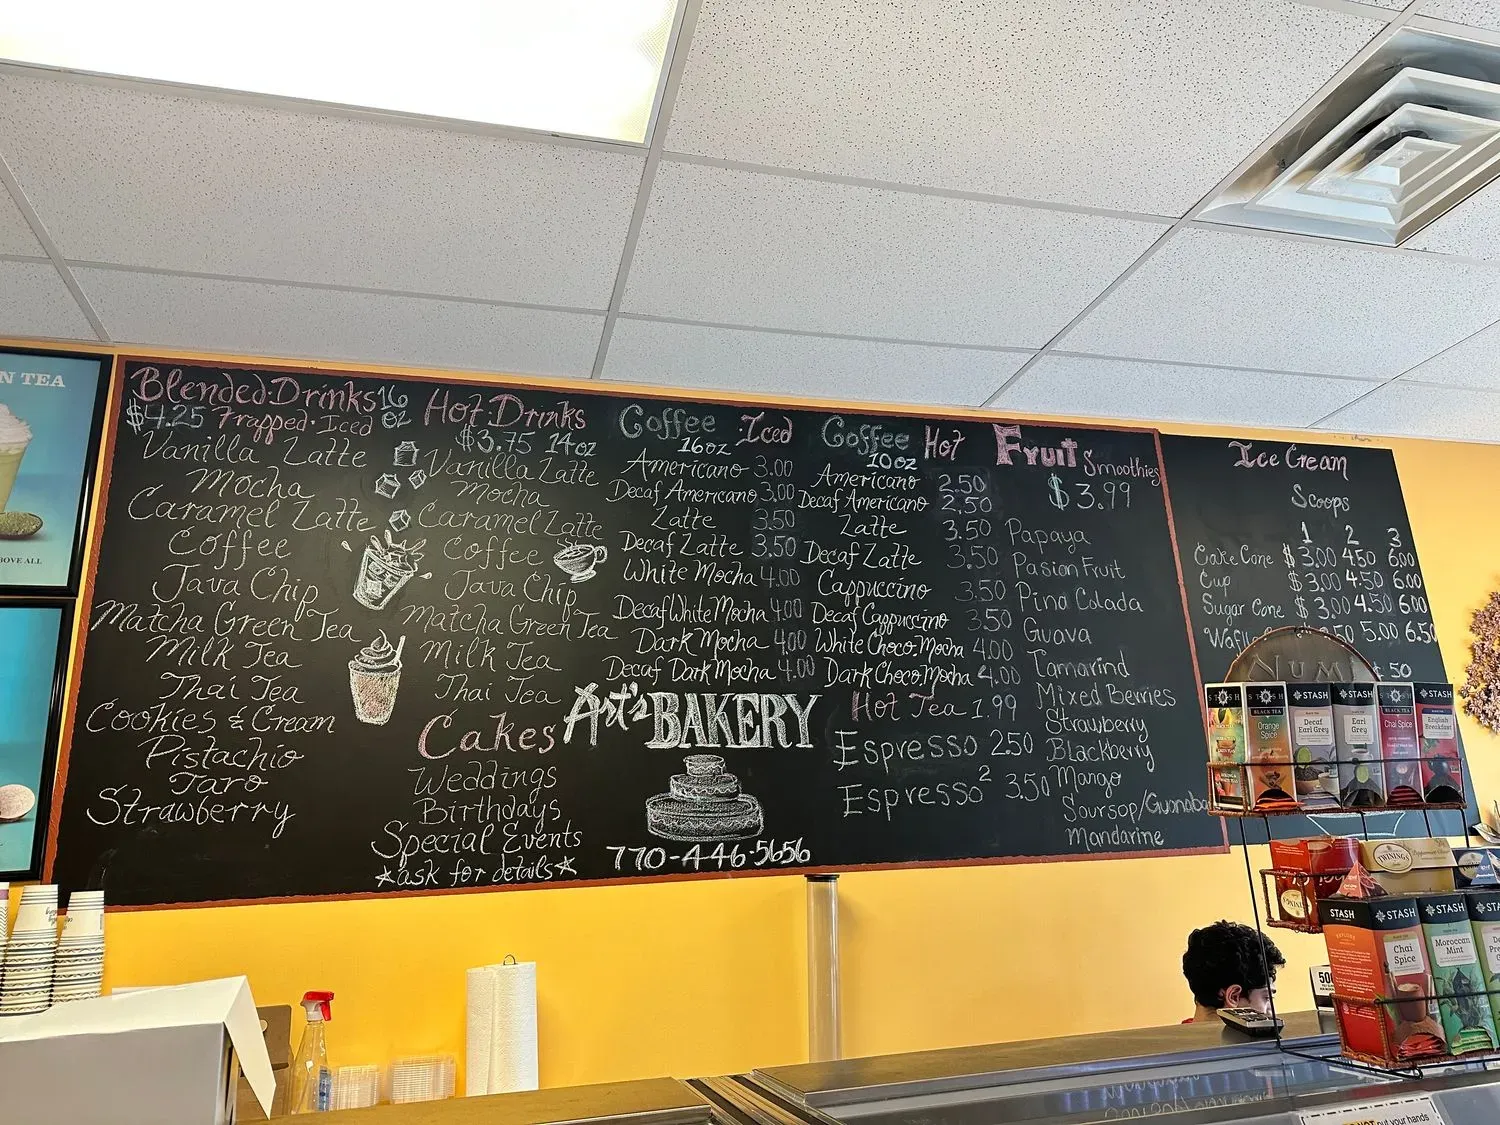 N TEA
BOVE ALL
Blended·Drinks 16 oz
$4.25 Frapped·Iced
Vanilla Latte
Mocha
Caramel Latte
Coffee
Java Chip
Matcha Green Tea
Milk Tea
Thai Tea
Cookies & Cream
Pistachio
Taro
Strawberry
Hot·Drinks
$3.75 14oz
Vanilla Latte
Mocha
Caramel Latte
Coffee
Java Chip
Matcha Green Tea
Milk Tea
Thai Tea
Cakes
Weddings
Birthdays
Special Events
*ask for details*
Coffee Iced
16oz
Americano 3.00
Decaf Americano 3.00
Latte 3.50
Decaf Latte 3.50
White Mocha 4.00
Decaf White Mocha 4.00
Dark Mocha 4.00
Decaf Dark Mocha 4.00
Art's BAKERY
770-446-5656
Coffee Hot
10oz
Americano 2.50
Decaf Americano 2.50
Latte 3.50
Decaf Latte 3.50
Cappuccino 3.50
Decaf Cappuccino 3.50
White Choco.Mocha 4.00
Dark Choco.Mocha 4.00
Hot Tea 1.99
Espresso 2.50
Espresso² 3.50
Fruit Smoothies
$3.99
Papaya
Pasion Fruit
Pina Colada
Guava
Tamarind
Mixed Berries
Strawberry
Blackberry
Mango
Soursop/Guanaba
Mandarine
Ice Cream
Scoops
1 2 3
Cake Cone $3.00 4.50 6.00
Cup $3.00 4.50 6.00
Sugar Cone $3.00 4.50 6.00
Waffle 50 5.00 6.50
NUM
.50
STASH
STASH
BLACK TEA
Orange Spice
STASH
Decaf Earl Grey
STASH
Earl Grey
STASH
BLACK TEA
Chai Spice
STASH
English Breakfast
TWININGS
STASH
STASH
Chai Spice
STASH
Moroccan Mint
STASH
500
NOT put your hands